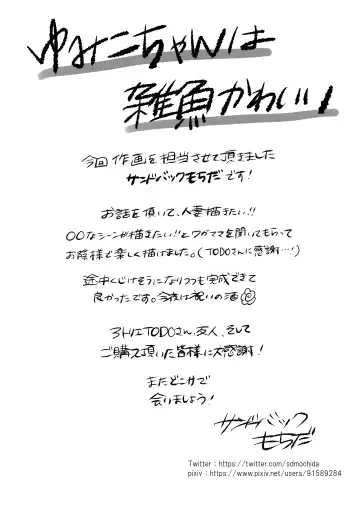 ゆみこちゃんは
雑魚かわいい!
今回作画を担当させて頂きました
サンドバックもちだです!
お話を頂いて、人妻描きたい!!
〇〇なシーンが描きたい!!とワガママを聞いてもらって
お陰様で楽しく描けました。(TODOさんに感謝…!)
途中くじけそうになりつつも完成できて
良かったです。今夜は祝いの酒
アトリエTODOさん、友人、そして
ご購入頂いた皆様に大感謝!
またどこかで
会いましょう!
サンドバック
もちだ
Twitter：https://twitter.com/sdmochida
pixiv：https://www.pixiv.net/users/91589284